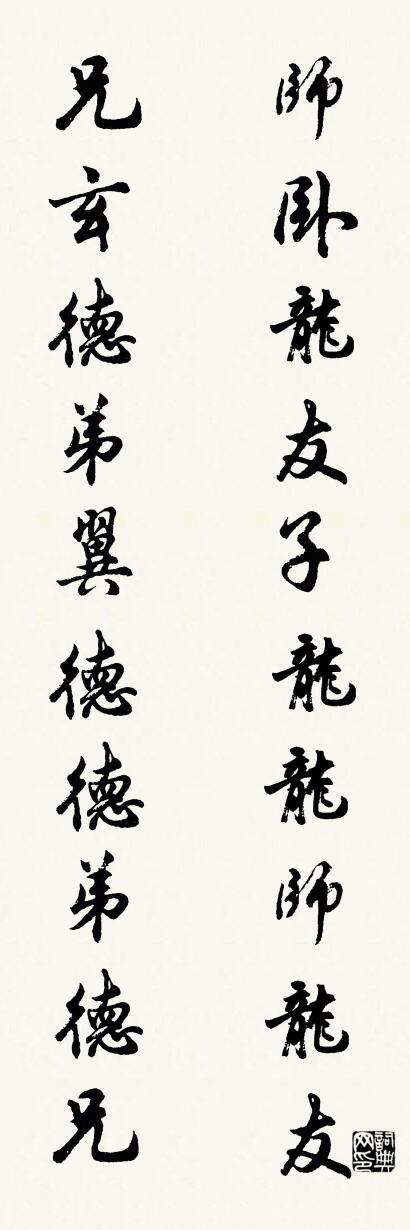 師卧龍友子龍龍師龍友
兄玄德弟翼德德弟德兄
詞典
网印